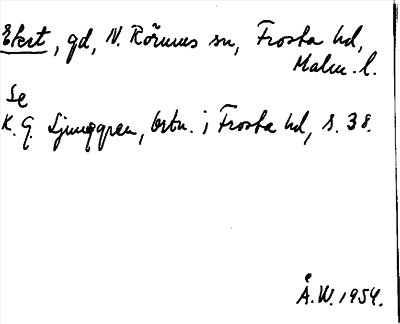 Ekert, gd, N. Rörums sn, Frosta hd,
Malm. l.
Se
K. G. Ljunggren, ortn. i Frosta hd, s. 38.
Å. W. 1954.